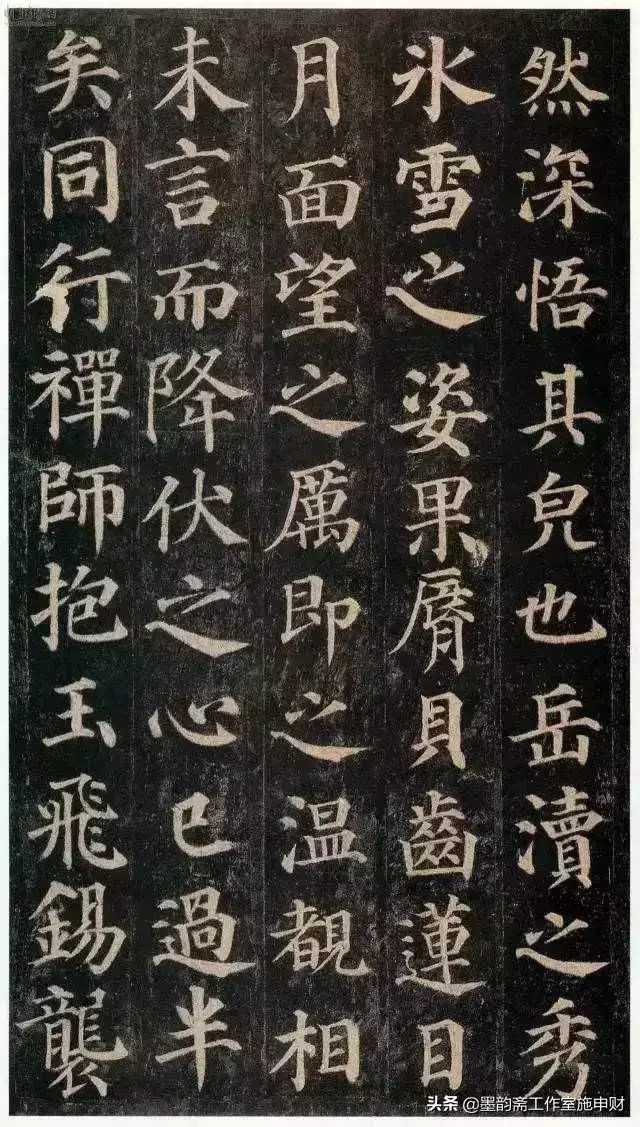 然深悟其皃也岳瀆之秀
氷雪之姿果脣貝齒蓮目
月面望之厲即之温覩相
未言而降伏之心已過半
矣同行禪師抱玉飛錫襲
头条@墨韵斋工作室施申财